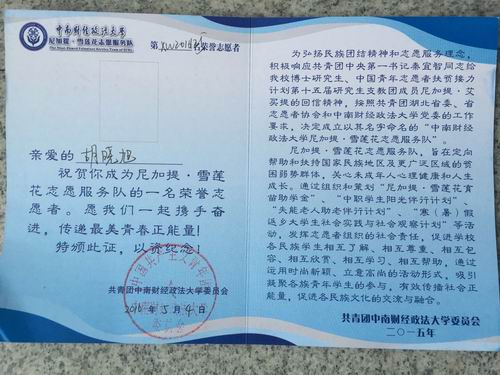 中南财经政法大学
尼加提·雪莲花志愿服务队
荣誉志愿者
亲爱的 胡晓旭
祝贺你成为尼加提·雪莲
花志愿服务队的一名荣誉志
愿者。愿我们一起携手奋
进，传递最美青春正能量！
特颁此证，以资纪念！
共青团中南财经政法大学委员会
2016年5月4日
为弘扬民族团结精神和志愿服务理念，
积极响应共青团中央第一书记秦宜智同志给
我校博士研究生、中国青年志愿者扶贫接力
计划第十五届研究生支教团成员尼加提·艾
买提的回信精神，按照共青团湖北省委、省
志愿者协会和中南财经政法大学党委的工作
要求，决定成立以其名字命名的“中南财经
政法大学尼加提·雪莲花志愿服务队”。
尼加提·雪莲花志愿服务队，旨在定向
帮助和扶持国家民族地区及更广泛区域的贫
困弱势群体，关心未成年人心理健康和人生
成长。通过组织和策划“尼加提·雪莲花育
苗助学金”、“中职学生阳光伴行计划”、
“失能老人助老伴行计划”、“寒（暑）假返
乡大学生社会实践与社会观察计划”等活
动，发挥志愿者组织的社会责任，促进学校
各民族学生相互了解、相互尊重、相互包
容、相互欣赏、相互学习、相互帮助，通过
运用时尚新颖、立意高尚的活动形式，吸引
凝聚各族青年学生的参与，有效传播社会正
能量，促进各民族文化的交流与融合。
共青团中南财经政法大学委员会
二〇一五年